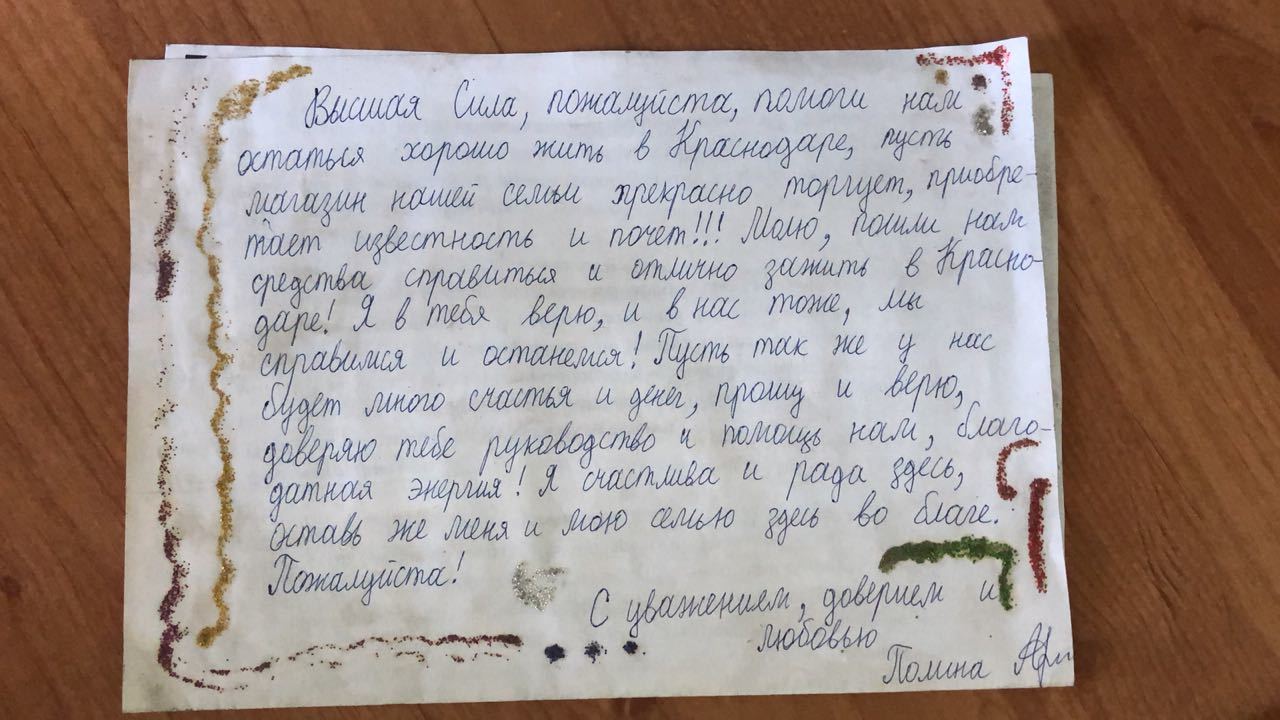 Высшая Сила, пожалуйста, помоги нам
остаться хорошо жить в Краснодаре, пусть
магазин нашей семьи прекрасно торгует, приобре-
тает известность и почет!!! Молю, пошли нам
средства справиться и отлично зажить в Красно-
даре! Я в тебя верю, и в нас тоже, мы
справимся и останемся! Пусть так же у нас
будет много счастья и денег, прошу и верю,
доверяю тебе руководство и помощь нам, благо-
датная энергия! Я счастлива и рада здесь,
оставь же меня и мою семью здесь во благе.
Пожалуйста!
С уважением, доверием и
любовью
Полина